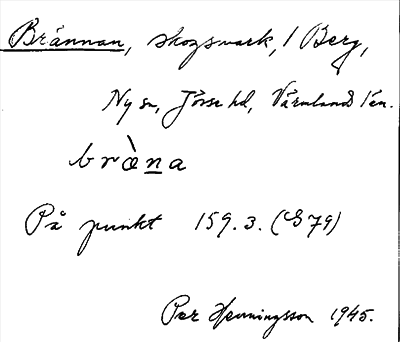 Brännan, skogsmark, 1 Berg,
Ny sn, Jösse hd, Värmlands län.
bræ̀na
På punkt 159.3. (S79)
Per Henningsson 1945.